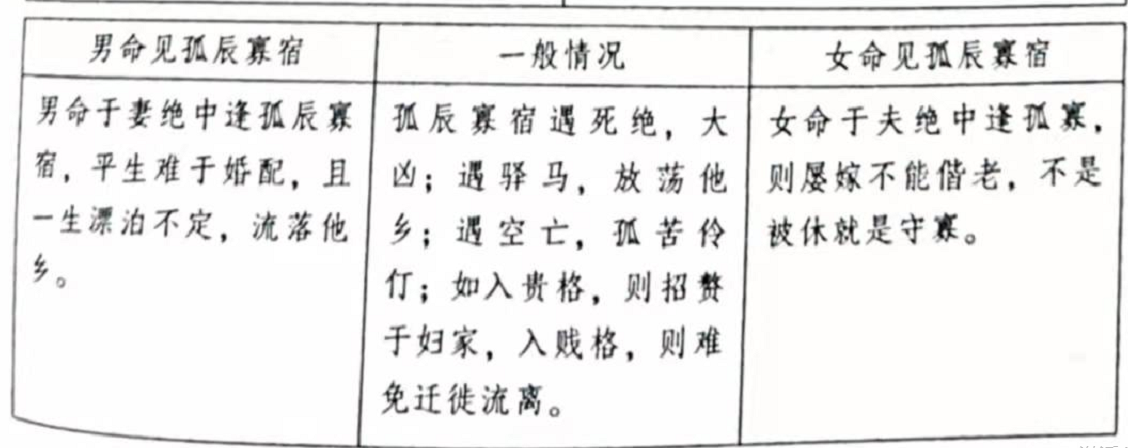 男命见孤辰寡宿
男命于妻绝中逢孤辰寡
宿，平生难于婚配，且
一生漂泊不定，流落他
乡。
一般情况
孤辰寡宿遇死绝，大
凶；遇驿马，放荡他
乡；遇空亡，孤苦伶
仃；如入贵格，则招赘
于妇家，入贱格，则难
免迁徙流离。
女命见孤辰寡宿
女命于夫绝中逢孤寡，
则屡嫁不能偕老，不是
被休就是守寡。